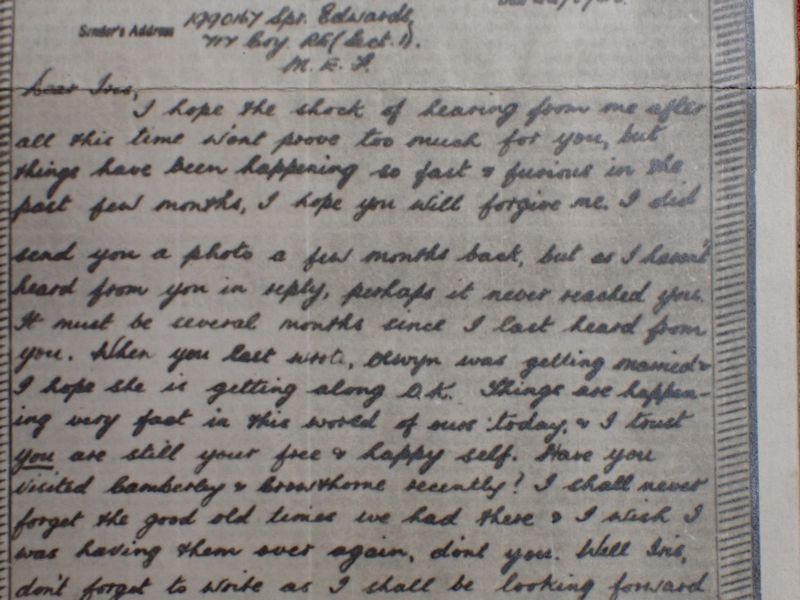 Sender's Address 1990167 Spr. Edwards,
Coy. RE (Sect. 1).
M. E. F.
Dear Iris,
I hope the shock of hearing from me after
all this time wont prove too much for you, but
things have been happening so fast & furious in the
past few months, I hope you will forgive me. I did
send you a photo a few months back, but as I haven't
heard from you in reply, perhaps it never reached you.
It must be several months since I last heard from
you. When you last wrote, Olwyn was getting married &
I hope she is getting along O.K. Things are happen-
ing very fast in this world of ours today, & I trust
you are still your free & happy self. Have you
visited Camberley & Crowthorne recently? I shall never
forget the good old times we had there & I wish I
was having them over again, dont you. Well Iris,
don't forget to write as I shall be looking forward